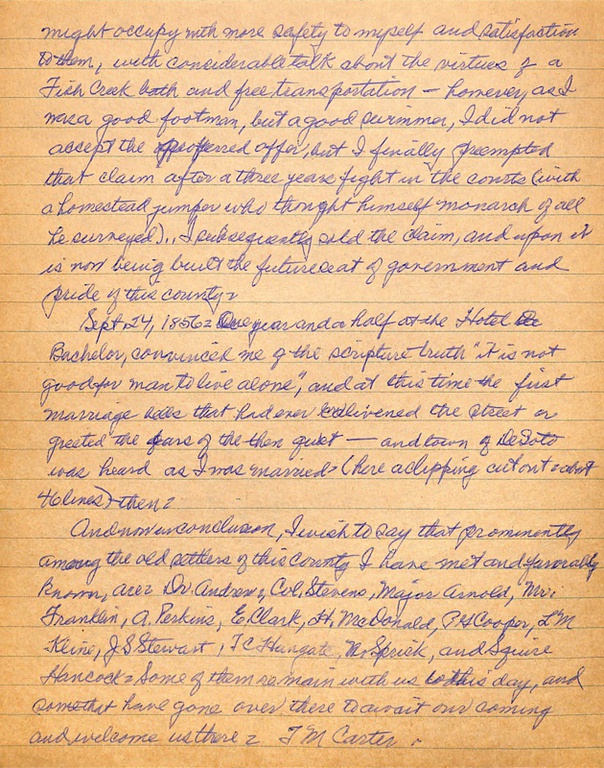 might occupy with more safety to myself and satisfaction
to them, with considerable talk about the virtues of a
Fish Creek bath and free transportation – however, as I
was a good footman, but a good swimmer, I did not
accept the proffered offer, but I finally preempted
that claim after a three years fight in the courts (with
a homestead jumper who thought himself monarch of all
he surveyed)., I subsequently sold the claim, and upon it
is now being built the future seat of government and
pride of this county=
Sept, 24, 1856= One year and a half at the Hotel De
Bachelor, convinced me of the scripture truth "it is not
good for man to live alone", and at this time the first
marriage bells that had ever enlivened the street or
greeted the ears of the then quiet — and town of DeSoto
was heard as I was married= (here a clipping cut out = about
46 lines) then=
And now in conclusion, I wish to say that prominently
among the old settlers of this county I have met and favorably
known, are= Dr. Andrews, Col. Stevens, Major Arnold, Mr.
Franklin, A. Perkins, E. Clark, H. McDonald, P G Cooper, L M
Kline, J. S Stewart, T C Hungate, Sprick, and Squire
Hancock= Some of them remain with us to this day, and
some that have gone over there to await our coming
and welcome us there= T M Carter.